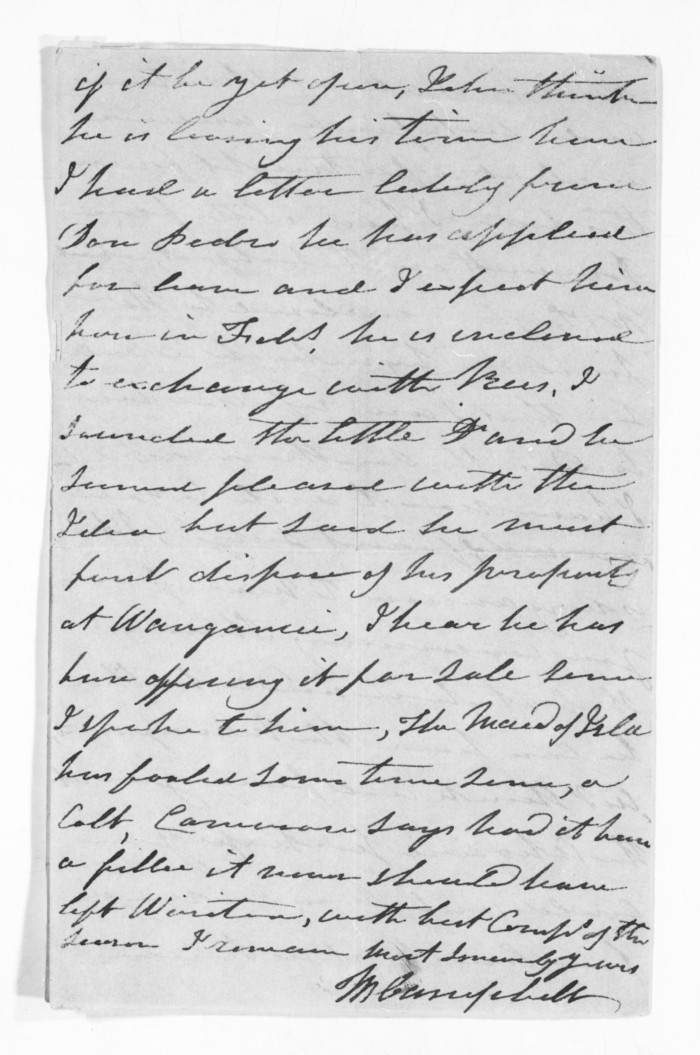 if it be yet open, John thinks
he is loosing his time here
I had a letter lately from
Don Pedro he has applied
for leave and I expect him
here in Feby, he is inclined
to exchange with Rees, I
sounded the little Dr and he
seemed pleased with the
Idea but said he must
first dispose of his property
at Wanganui, I hear he has
been offering it for sale since
I spoke to him, The Maid of Isla
has foaled some time since, a
Colt, Cameron says had it been
a fillie it never should have
left, with best Compts of the
season I remain most sincerely yours
M Campbell